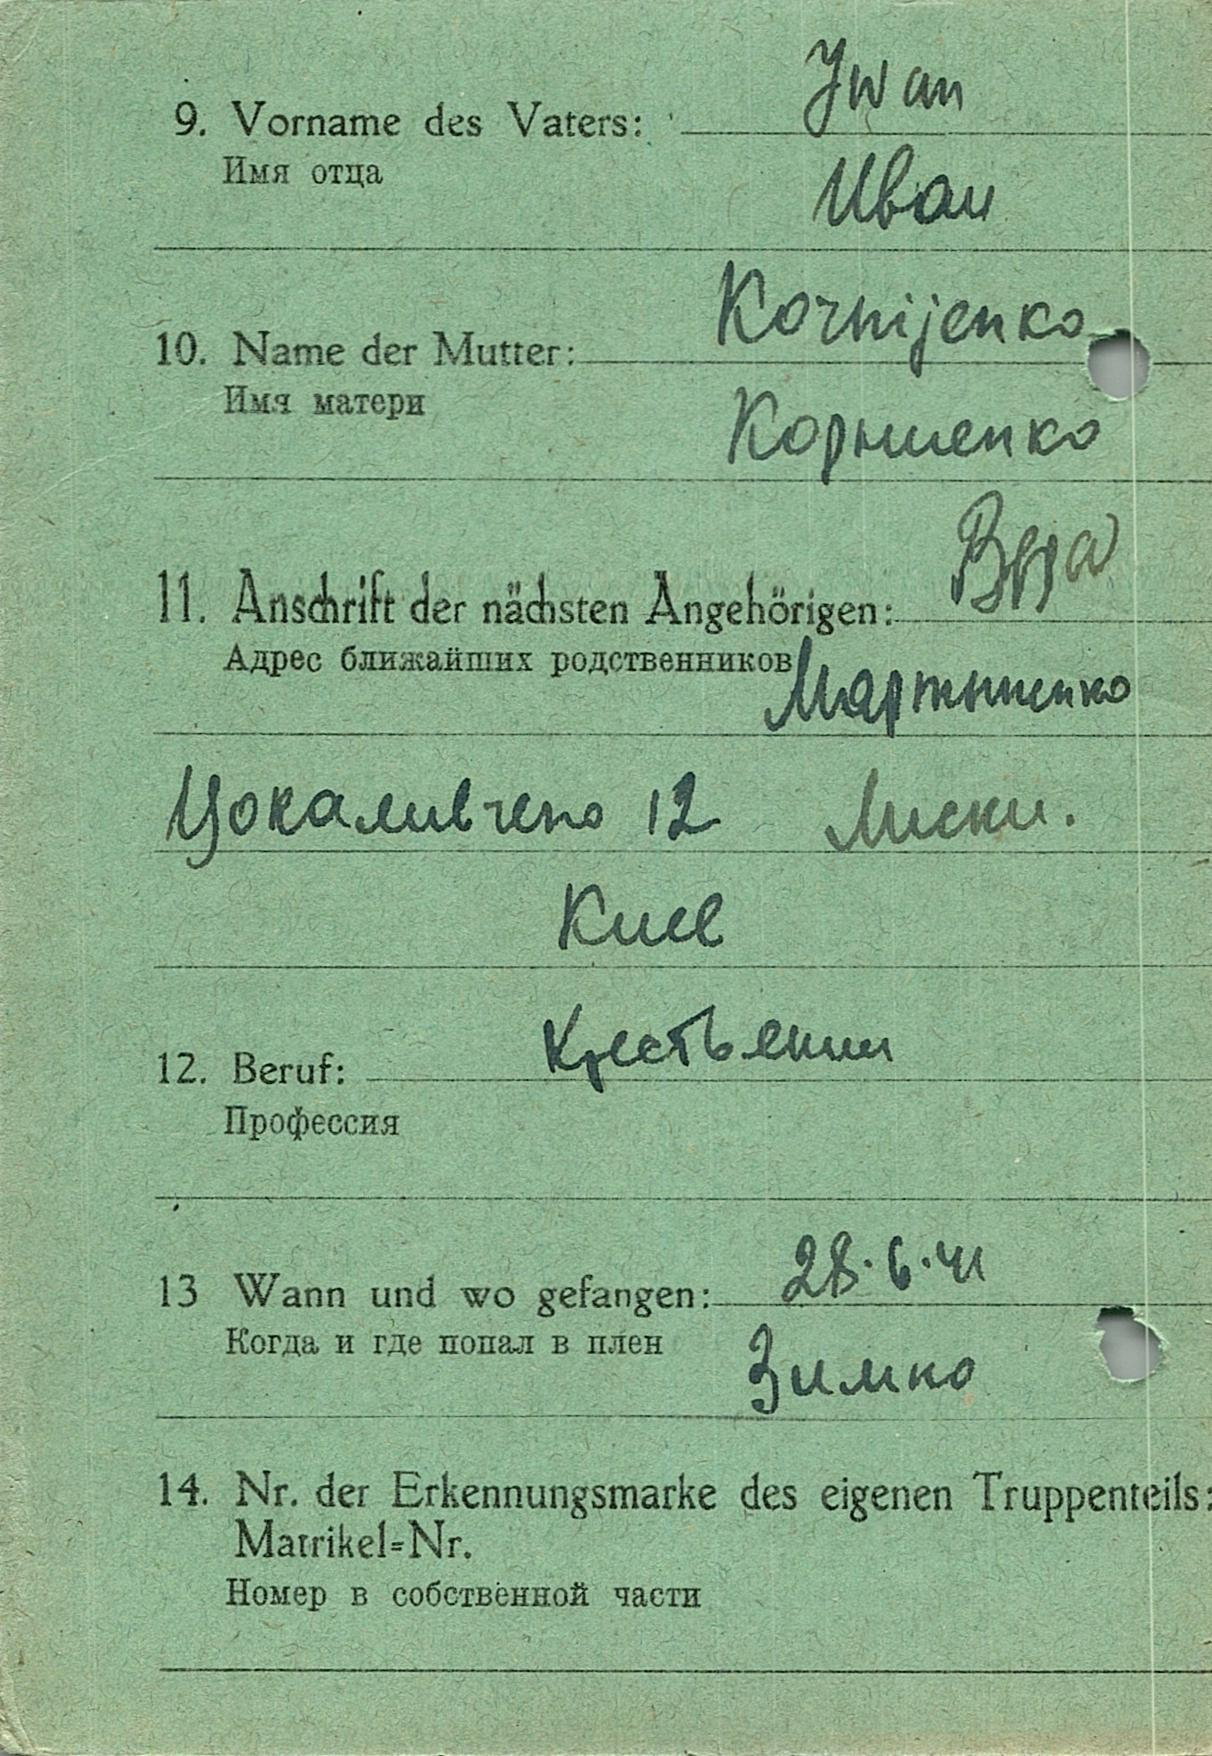 9. Vorname des Vaters: Jwan
Имя отца
Иван
Kornijenko
10. Name der Mutter:
Имя матери
Корниенко
Вера
11. Anschrift der nächsten Angehörigen:
Адрес ближайших родственников
Мартыненко
12 Миски.
Киев
12. Beruf: Крестьенин
Профессия
13 Wann und wo gefangen: 28.6.41
Когда и где попал в плен
Зимно
14. Nr. der Erkennungsmarke des eigenen Truppenteils:
Matrikel=Nr.
Номер в собственной части